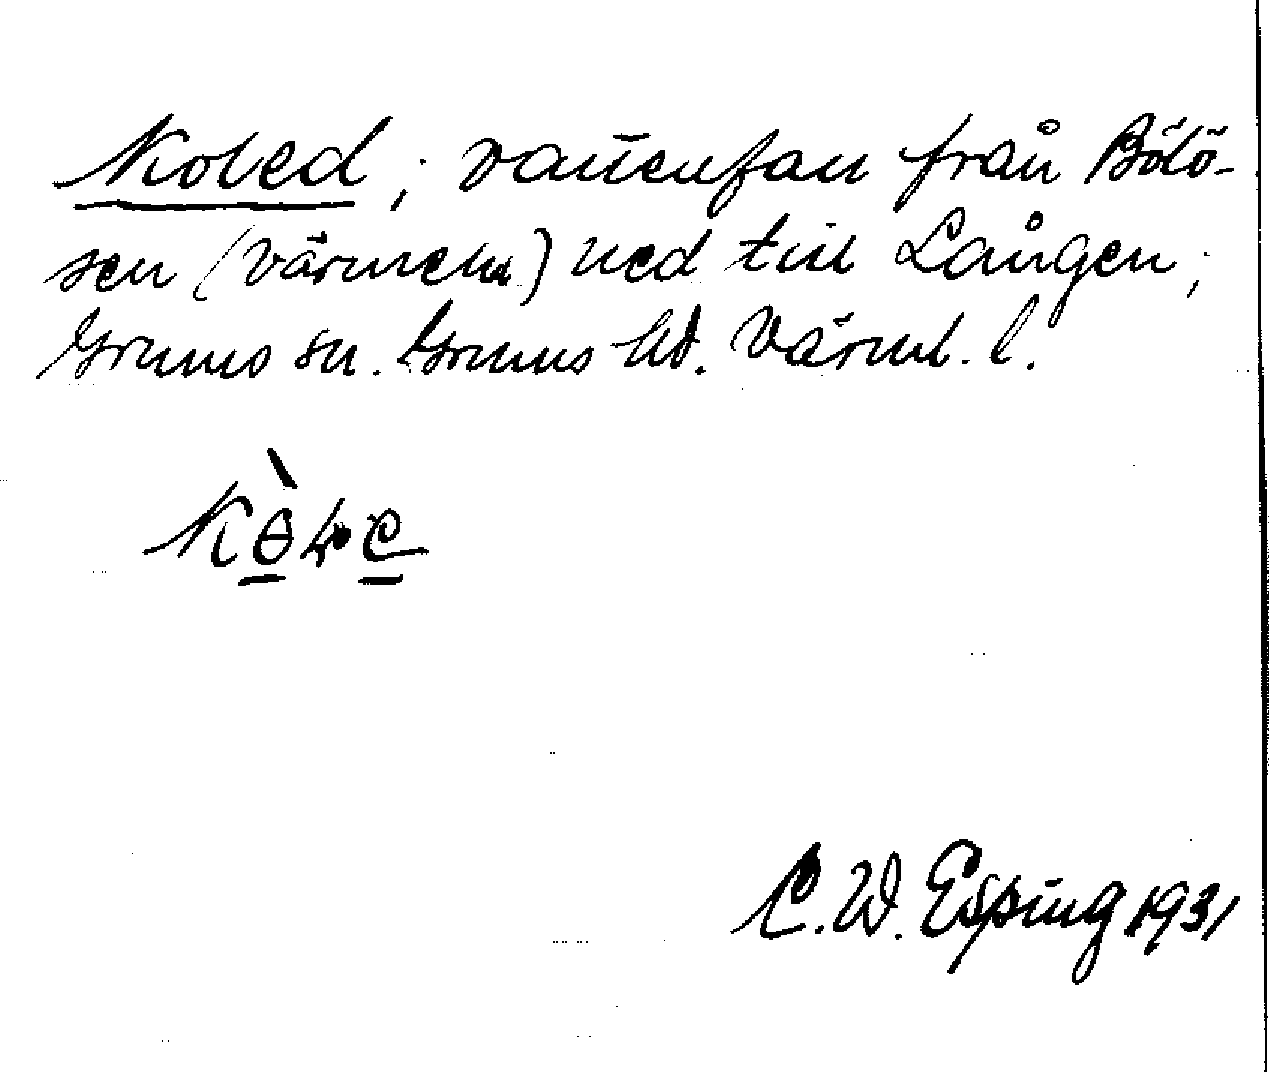 Kobed; vattenfall från Bölö-
sen (Värmeln) ned till Lången;
Grums sn. Grums hd. Värml. l.
C. W. Esping 1931